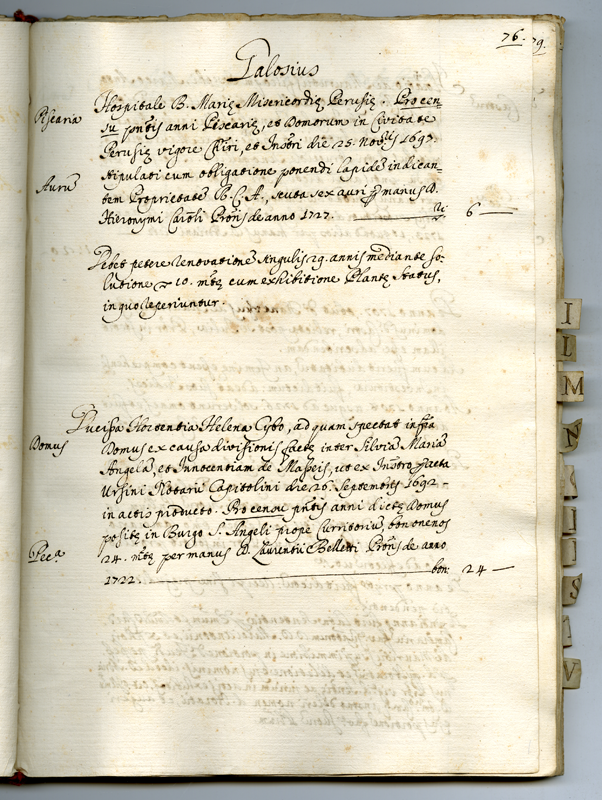 76.
79.
Talosius
Piscaria
Hospitale B. Marię Misericordię Perusię. Pro cen-
su pntis anni Piscarię, et Domorum in Civitate
Perusię vigore Chiri, et Instri die 25. Novbris 1697.
stipulati cum obligatione ponendi lapidē indican-
Aurū
tem Proprietatē R. C. A., scuta sex auri p manus D.
Hieronymi Caroli Proris de anno 1727.
6 —
Debet petere renovationē singulis 29. annis mediante so-
lutione 10. mtę cum exhibitione Plantę status,
in quo reperiuntur.
Ducissa Hortentia Helena Cybo, ad quam spectat infra
Domus
Domus ex causa divisionis factę inter Silviā Mariā
Angelā, et Innocentiam de Maffeis, ut ex Instro p acta
Ursini Notarii Capitolini die 26. Septembris 1692 -
in actis producto. Pro censu pntis anni dictę Domus
positę in Burgo S. Angeli prope Curritoriū, bon: onenos
Pec.a
24. mtę per manus D. Laurentii Belletti Proris de anno
1722.
bon: 24 —
I
L
M
N
S
I
S
V